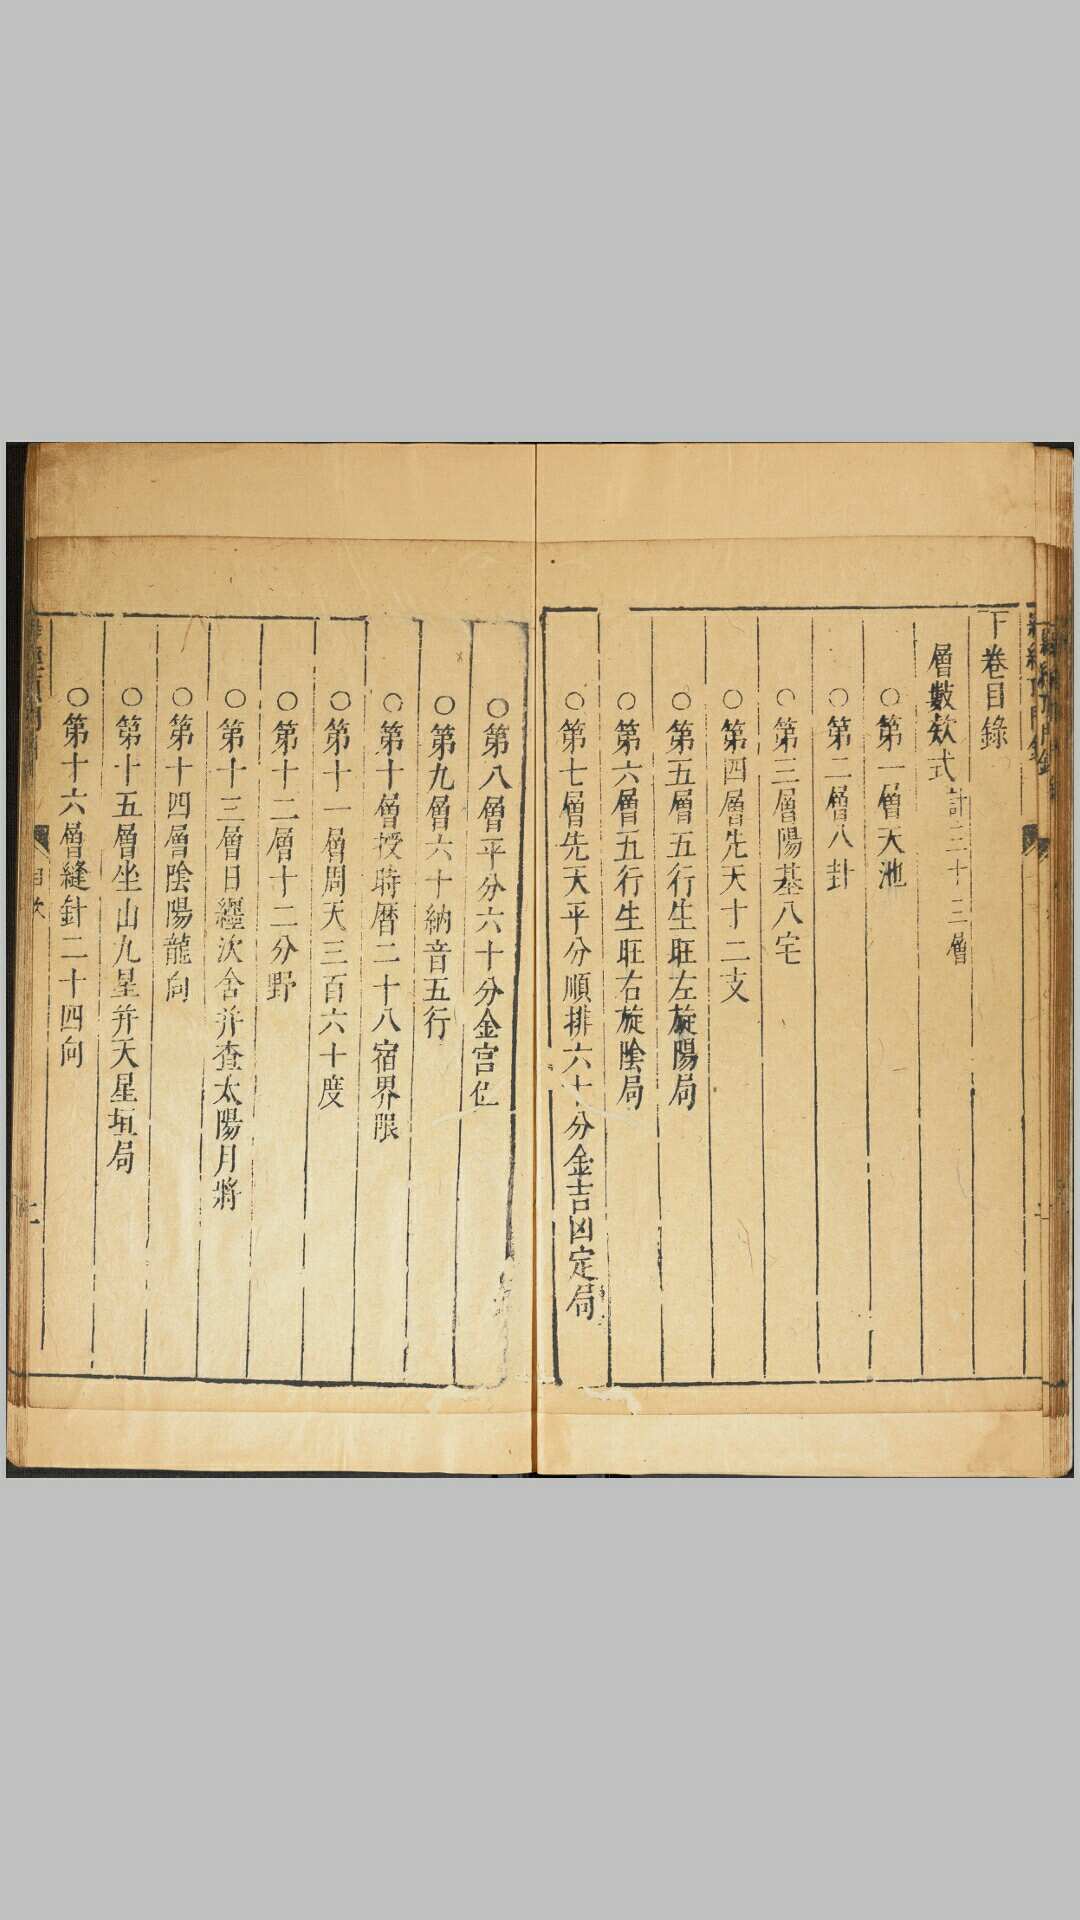 下卷目錄
層數欸式計三十三層
○第一層天池
○第二層八卦
○第三層陽基八宅
○第四層先天十二支
○第五層五行生旺左旋陽局
○第六層五行生旺右旋陰局
○第七層先天平分順排六十分金吉凶定局
○第八層平分六十分金宮位
○第九層六十納音五行
○第十層授時曆二十八宿界限
○第十一層周天三百六十度
○第十二層十二分野
○第十三層日纒次舍并查太陽月將
○第十四層陰陽龍向
○第十五層坐山九星并天星垣局
○第十六層縫針二十四向
目次
二